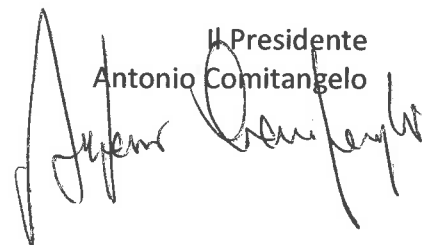 Il Presidente
Antonio Comitangelo
Antonio Comitangelo